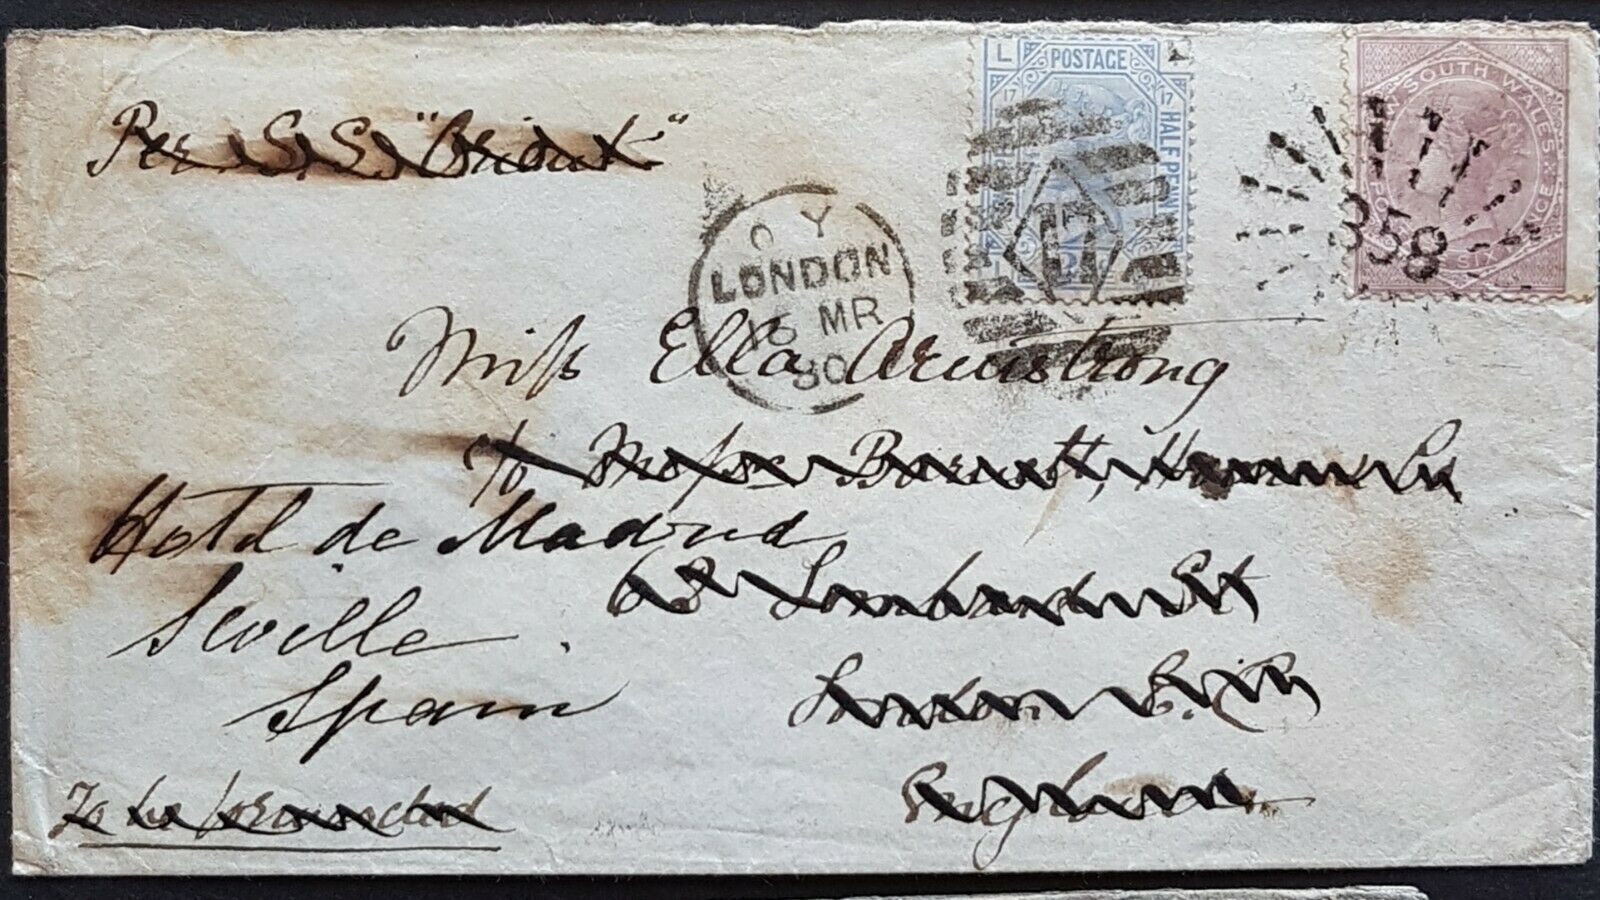 Per S.S. "Orient"
L POSTAGE
17 17
HALF PENN
17
NEW SOUTH WALES
POSTAGE SIX PENCE
358
O Y
LONDON
15 MR
80
Miss Ella Armstrong
c/o Messrs Barnett,
Hotel de Madrid
63 Lombard St
Seville
London
Spain
England
To be forwarded